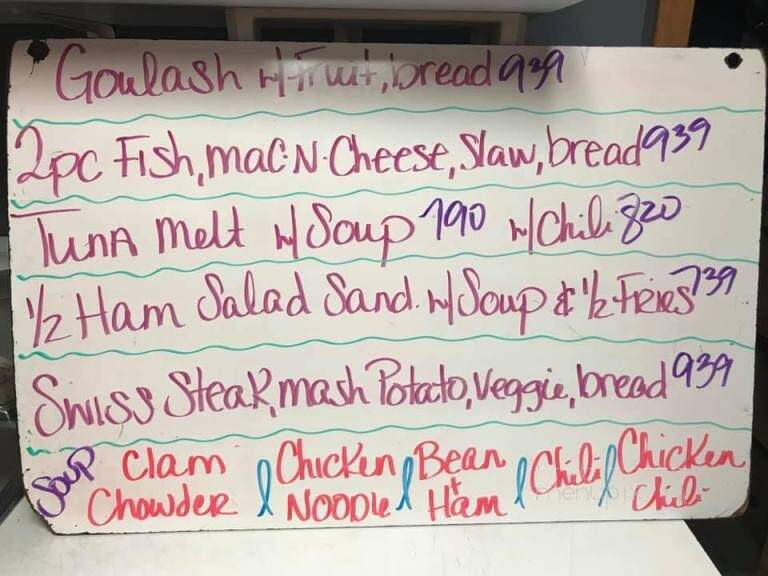 Goulash w/ Fruit, bread 939
2pc Fish, mac·N·Cheese, Slaw, bread 939
Tuna melt w/ Soup 790 w/ Chili 820
1/2 Ham Salad Sand. w/ Soup & 1/2 Fries 739
Swiss Steak, mash Potato, Veggie, bread 939
Soup Clam Chicken Bean Chili Chicken
Chowder NOODle + Ham Chili
menupix